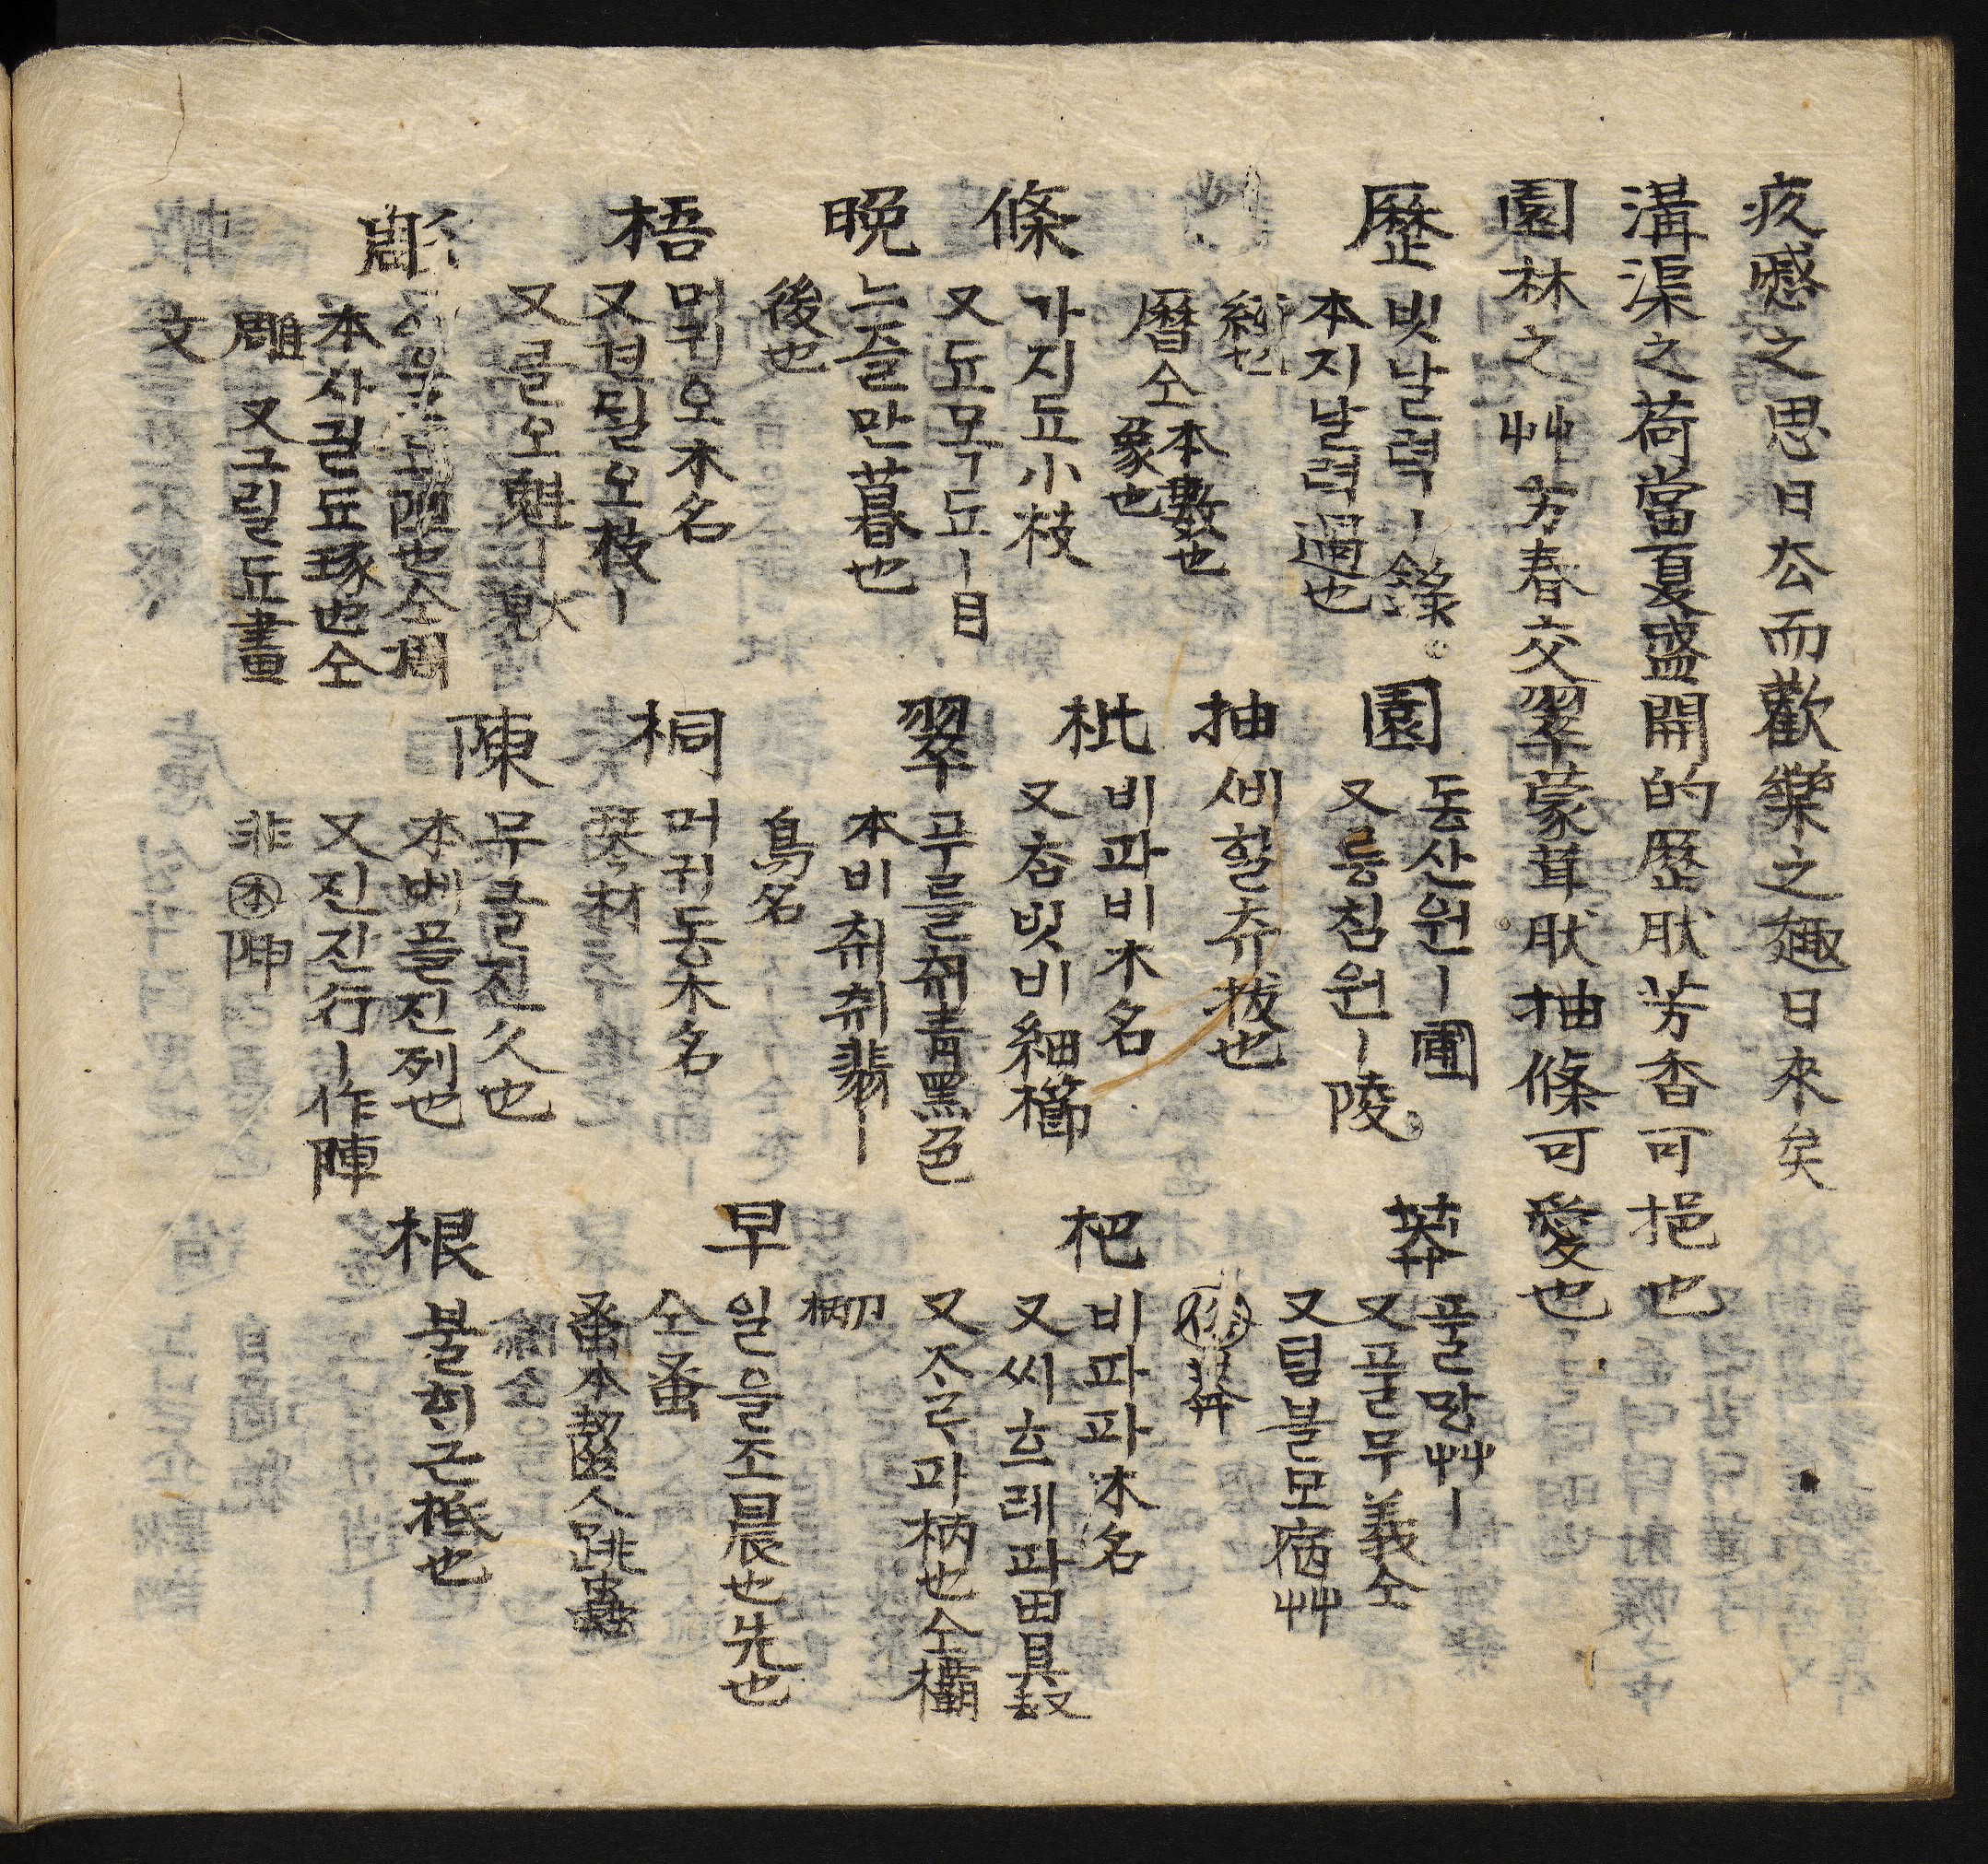 疚慼之思日厺而歡樂之趣日來矣
溝渠之荷當夏盛開的歷肰芳香可挹也
園林之艸方春交翠蒙茸肰抽條可愛也
歷
빗날력ㅣ錄
本지날력過也
曆仝本數也
象也
園
동산원ㅣ圃
又릉침원ㅣ陵
莽
풀망艸ㅣ
又풀무義仝
又텀블모宿艸
莾
抽
ᄲᅢᅘᅧᆯ츄拔也
條
가지됴小枝
又됴목됴ㅣ目
枇
비파비木名
又참빗비細櫛
杷
비파파木名
又씨흐레파田具
又ᄌᆞᄅᆞ파柄也仝欛
刀柄
晩
느즐만暮也
後也
翠
푸를취靑黑色
本비취취翡ㅣ
鳥名
梧
머귀오木名
又변틸오枝ㅣ
又클오魁ㅣ大
皃
桐
머귀동木名
琴材
早
일을조晨也先也
仝蚤
蚤本齧人跳蟲
彫
本사길됴琢也仝
雕 又그릴됴畫
文
陳
무글진久也
本베플진列也
又진진行ㅣ作陣
非㊍陣
根
불희근柢也